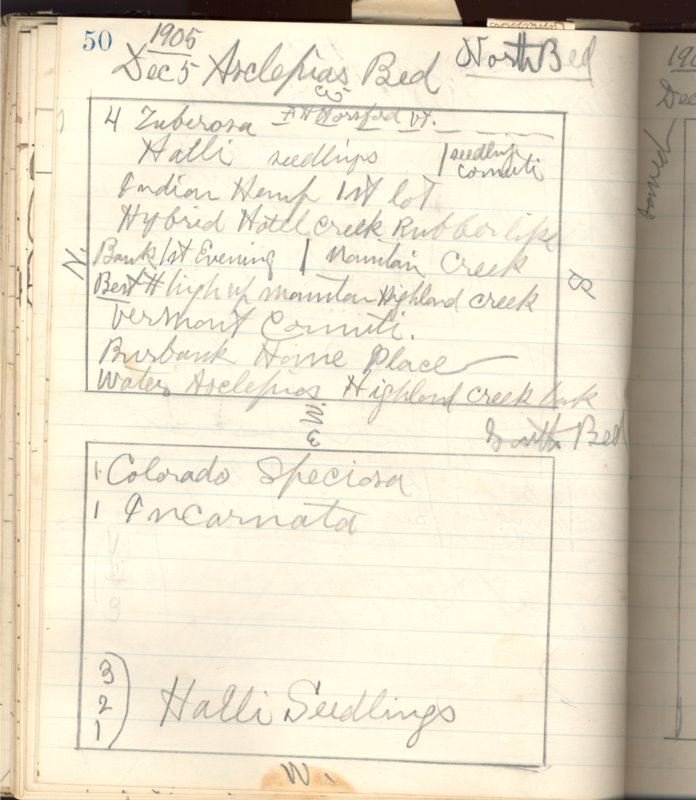 50
1905
Dec 5 Asclepias Bed North Bed
E
4 Tuberosa F H Horsford Vt.
Halli seedlings | seedling
Cornuti
Indian Hemp 1st lot
Hybrid Hotel Creek Rubber like
N.
S
Bank 1st Evening | Mountain Creek
Best # high up mountain Highland creek
Vermont Cornuti.
Burbank Home Place
Water Asclepias Highland creek bank
W.
E
South Bed
1 Colorado Speciosa
1 Incarnata
3
2 Halli Seedlings
1
W.
190
Dec